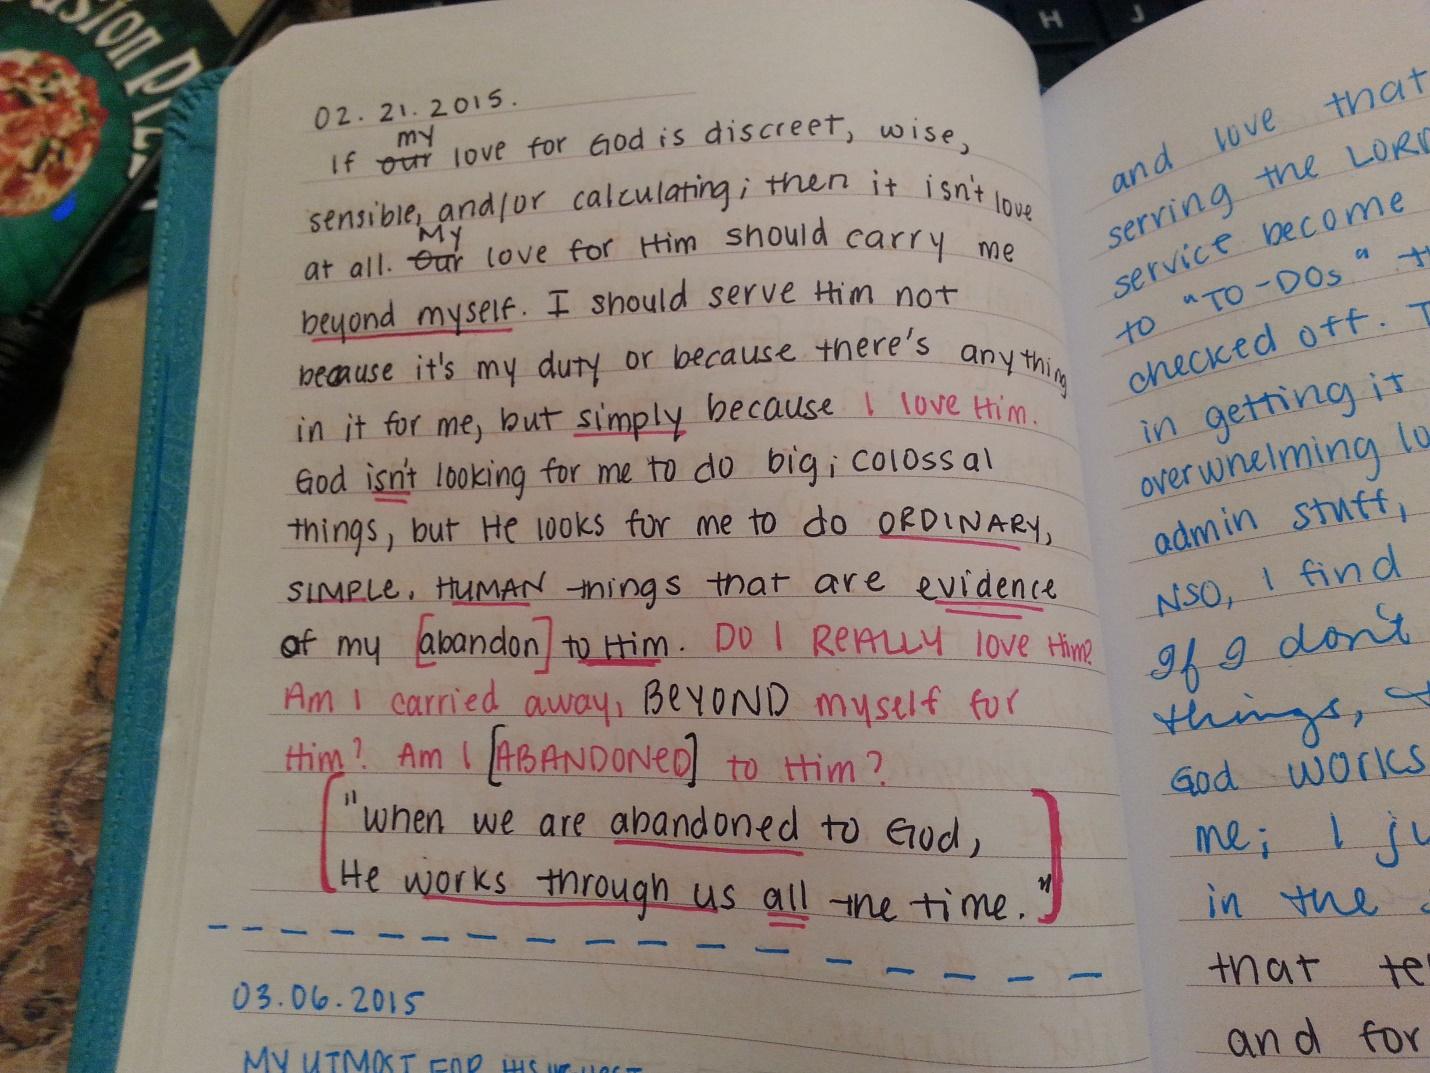 H J
02.21.2015.
my
If our love for God is discreet, wise,
sensible, and/or calculating; then it isn't love
My
at all. Our love for Him should carry me
beyond myself. I should serve Him not
because it's my duty or because there's anything
in it for me, but simply because I love Him.
God isn't looking for me to do big; colossal
things, but He looks for me to do ORDINARY,
SIMPLE, HUMAN things that are evidence
of my [abandon] to Him. DO I REALLY love Him?
Am I carried away, BEYOND myself for
Him? Am I [ABANDONED] to Him?
["when we are abandoned to God,
He works through us all the time."]
03.06.2015
MY UTMOST FOR HIS
and love that
serving the LORD
service become
to "TO-DOs"
checked off.
in getting it
overwhelming
admin stuff,
NSO, I find
If I don't
things,
God works
me; I
in the
that
and for